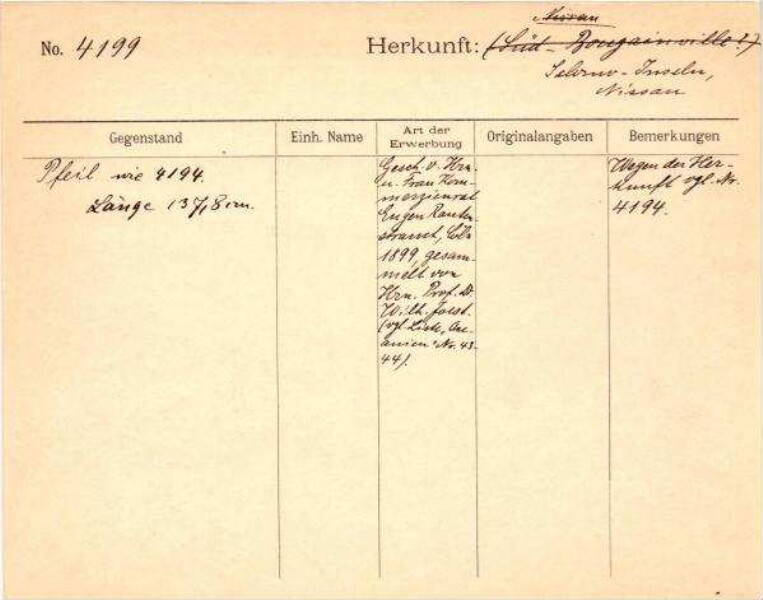 Nissan
No. 4199
Herkunft: (Süd-Bougainville?)
Salomo-Inseln,
Nissan
Gegenstand
Einh. Name
Art der
Erwerbung
Originalangaben
Bemerkungen
Pfeil wie 4194.
Länge 137,8 cm.
Gesch. v. Hrn.
u. Frau Kom-
merzienrat
Eugen Rauten-
strauch, Cöln
1899, gesam-
melt von
Hrn. Prof. Dr.
Wilh. Joest.
(vgl. Liste, Oce-
anien" Nr. 43-
44).
Wegen der Her-
kunft vgl. Nr.
4194.